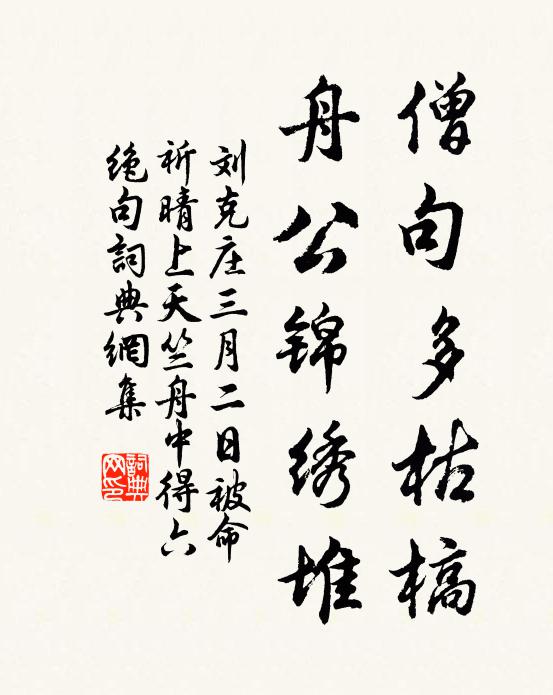 僧句多枯槁
舟公锦绣堆
刘克庄三月二日被命
祈晴上天竺舟中得六
绝句詞典網集
詞典
网印